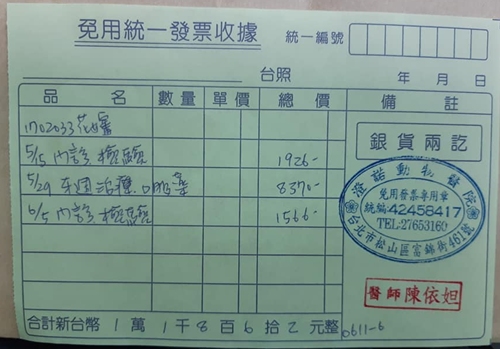 免用統一發票收據
統一編號
台照 年 月 日
品名 數量 單價 總價 備註
1702033花嬸
銀貨兩訖
5/15 內診 檢驗 1926-
5/29 住週治療 口服藥 8370-
6/5 內診 檢驗 1566-
澄諾動物醫院
免用發票專用章
統編:42458417
TEL:27653160
台北市松山區富錦街461號
醫師 陳依妲
合計新台幣 1 萬 1 千 8 百 6 拾 2 元整
0611-6